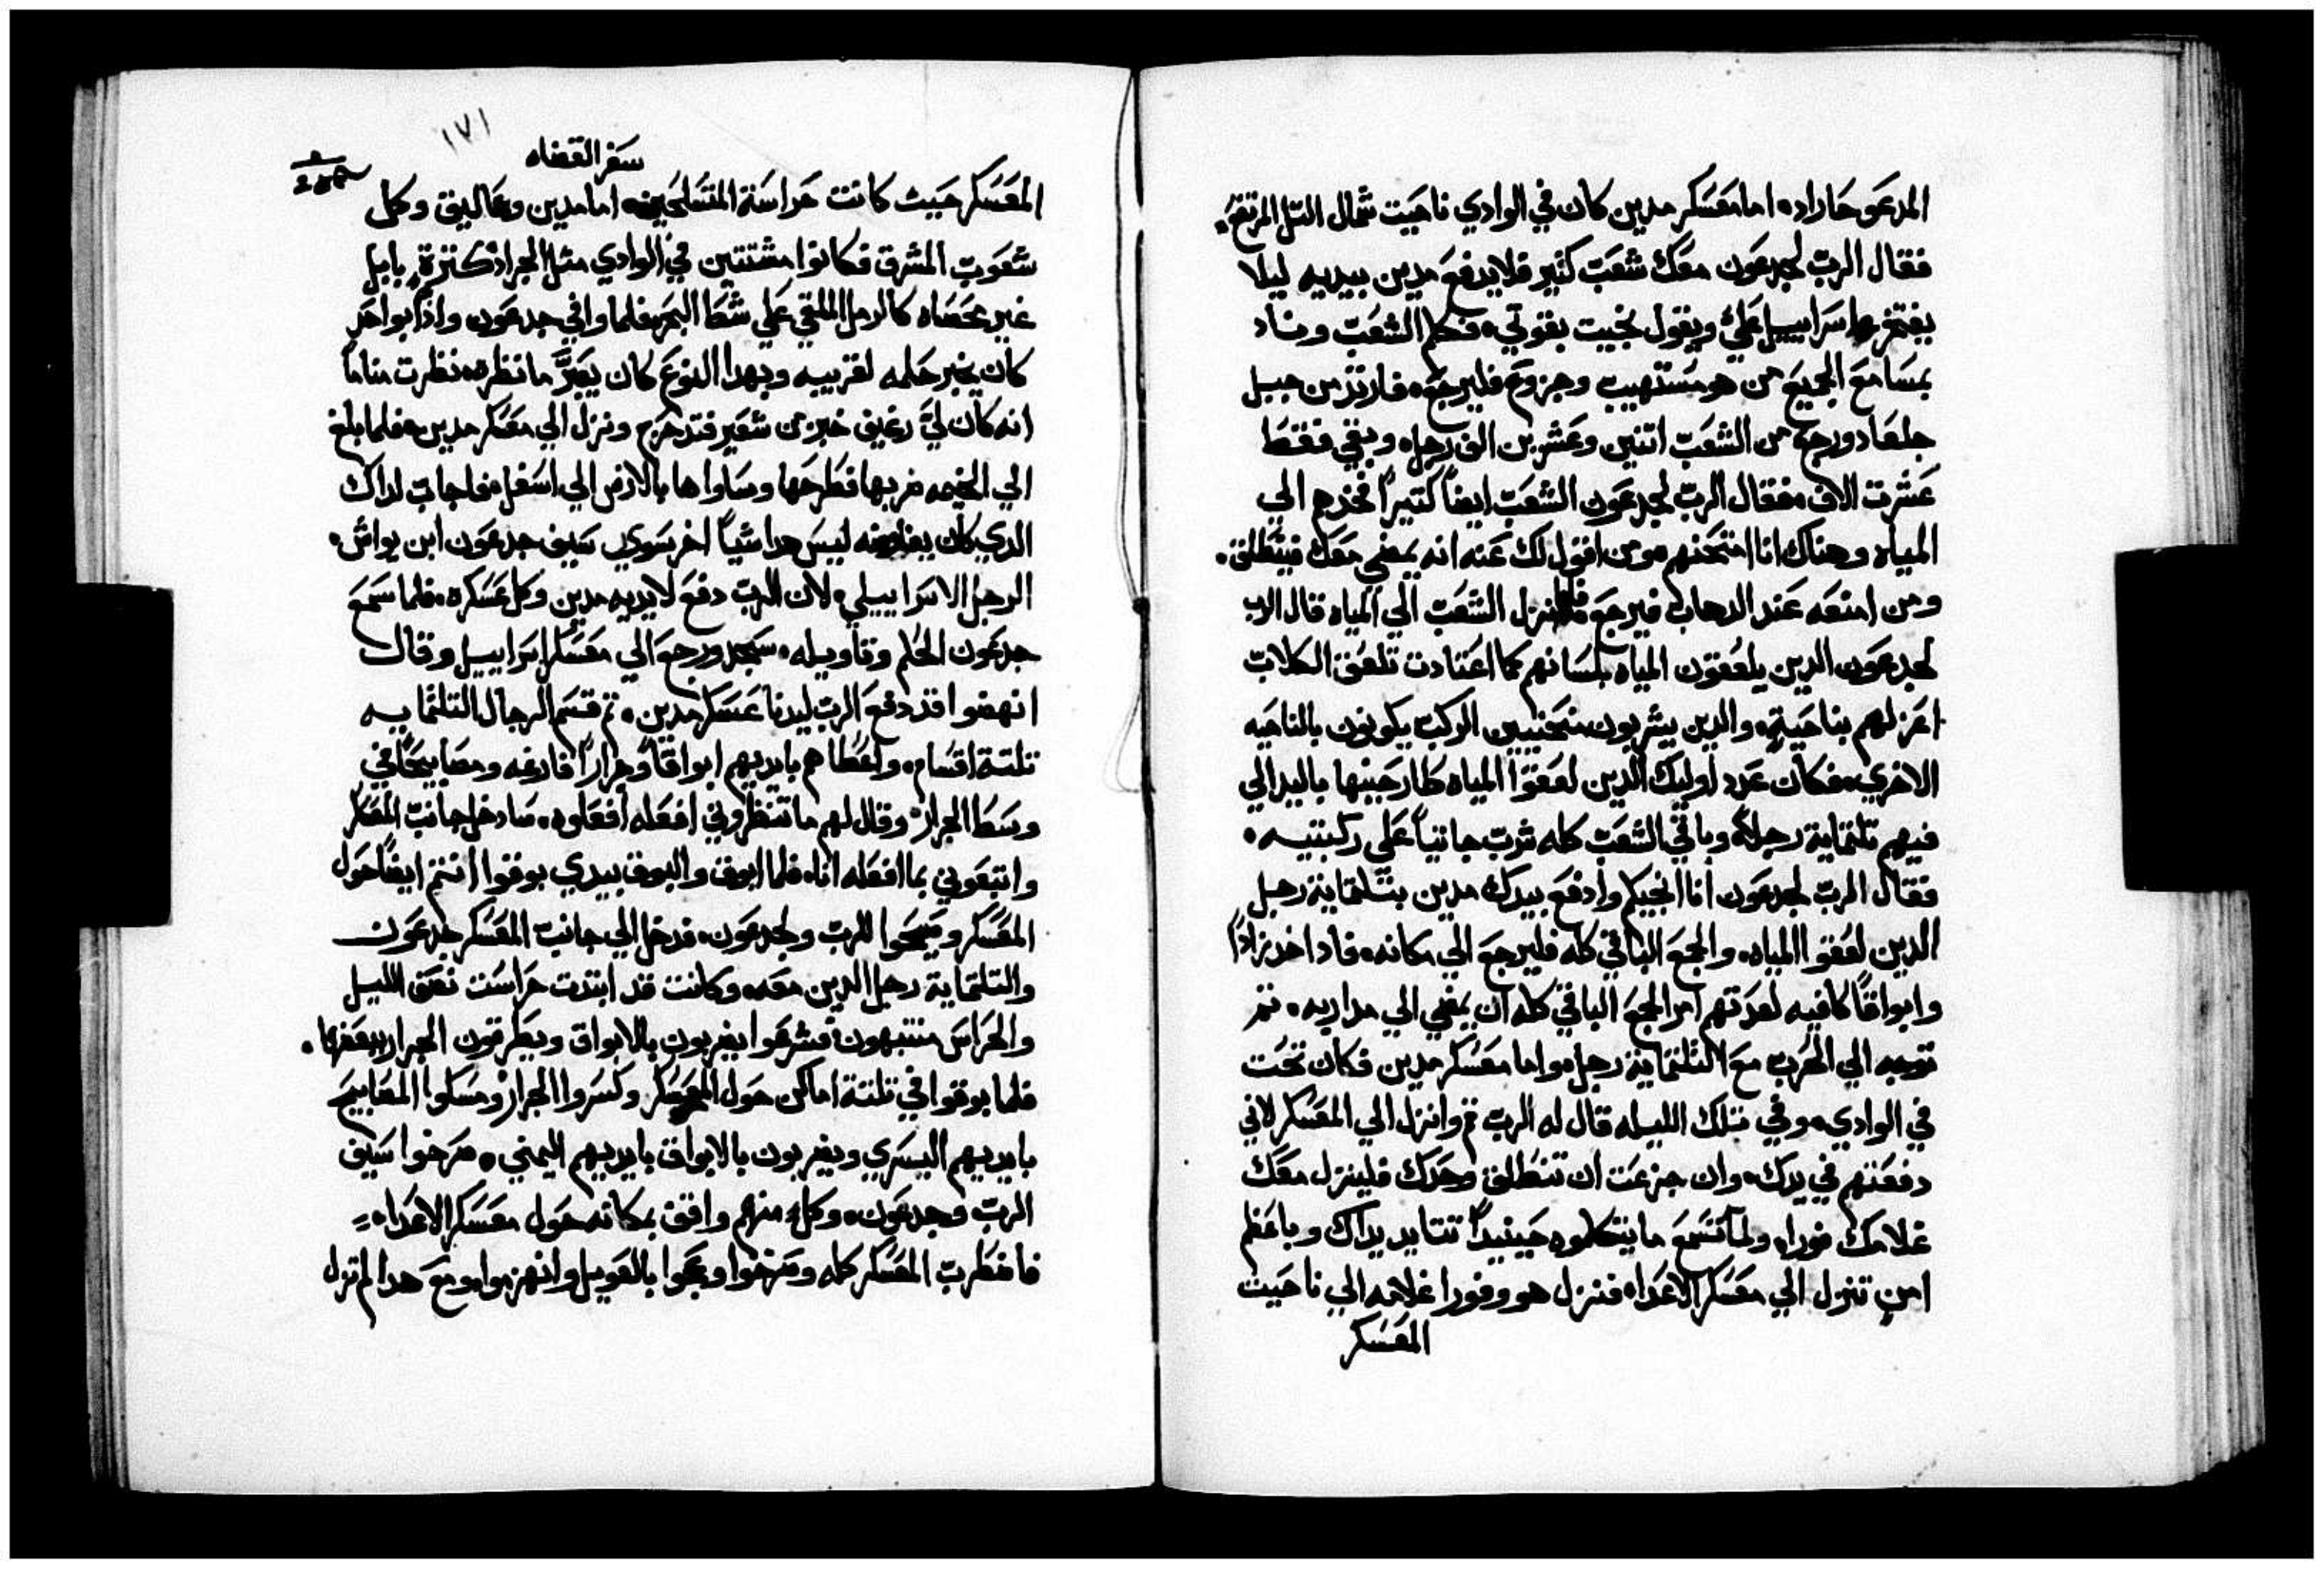 المدعو حاراده امامعسكر مدين كان في الوادي ناحيت شمال التل المرتفع.
فقال الرب لجدعون معك شعب كثير فلايدفع مدين بيديه ليلا
يفتخر اسراييل علي ويقول نجيت بقوتي. فكلم الشعب وناد
بمسامع الجميع من هو مستهيب وجزوع فليرجع. فارتد من جبل
جلعاد ورجع من الشعب اتنين وعشرين الف رجل. وبقي فقط
عشرت الاف. فقال الرب لجدعون الشعب ايضاً كتيراً فخدهم الي
المياه وهناك انا امتحنهم ومن اقول لك عنه انه يمضي معك فينطلق.
ومن امنعه عند الدهاب فيرجع فلما نزل الشعب الي المياه قال الرب
لجدعون الدين يلعقون المياه بلسانهم كما اعتادت تلعق الكلاب
اعزلهم بناحية. والدين يشربون منحنيين الركب يكونون بالناحيه
الاخري. فكان عدد اوليك الدين لعقوا المياه طارحينها باليد الي
فيهم تلتماية رجل. وباقي الشعب كله شرب جاتياً علي ركبتيه.
فقال الرب لجدعون انا انجيكم وادفع بيدك مدين بتلتماية رجل
الدين لعقوا المياه. والجمع الباقي كله فليرجع الي مكانه. فاد اخد زاداً
وابواقاً كافيه لعدتهم امر الجمع الباقي كله ان يمضي الي مداربه. تم
توجه الي الحرب مع التلتماية رجل. واما معسكر مدين فكان تحت
في الوادي. وفي تلك الليله قال له الرب قم وانزل الي المعسكر لاني
دفعتهم في يدك. وان جزعت ان تنطلق وحدك فلينزل معك
غلامك فورا. ولما تسمع ما يتكلموه حينيداً تتايد يداك وباعظم
امن تنزل الي معسكر الاعداء فنزل هو وفورا غلامه الي ناحيت
المعسكر
١٧١
سفر القضاه
المعسكر حيث كانت حراسة المتسلحين. اما مدين وعماليق وكل
شعوب المشرق فكانوا مشتتين في الوادي مثل الجراد كترة. بابل
غير محصاه كالرمل الملقي علي شط البحر. فلما وافي جدعون وادا بواحد
كان يخبر حلمه لقريبه وبهدا النوع كان يعبر ما نظره. نظرت مناماً
انه كان لي رغيف خبز من شعير قتدحرج ونزل الي معسكر مدين. فلما بلغ
الي الخيمه ضربها فطرحها وساواها بالارض الي اسفل. فاجاب لداك
الدي كان يفاوضه ليس هدا شياً اخر سوي سيف جدعون ابن يواش.
الرجل الاسراييلي. لان الرب دفع لايديه مدين وكل عسكره. فلما سمع
جدعون الحلم وتاويله. سجد ورجع الي معسكر اسراييل وقال
انهضوا فقد دفع الرب ليدنا عسكر مدين. تم قسم الرجال التلتمايه
تلتة اقسام. واعطاهم بايديهم ابواقاً وجراراً فارغه ومصابيحاً في
وسط الجرار. وقال لهم ما تنظروني افعله افعلوه. سادخل جانب المعسكر
واتبعوني بما افعله انا. فلما ابوق والبوق بيدي بوقوا انتم ايضاً حول
المعسكر وصيحوا للرب ولجدعون. فدخل الي جانب المعسكر جدعون
والتلتماية رجل الدين معه. وكانت قد ابتدت حراست نصف الليل
والحراس منتبهون. فشرعوا يضربون بالابواق ويطرقون الجرار ببعضها.
فلما بوقوا في تلتة اماكن حول المعسكر وكسروا الجرار ومسكوا المصابيح
بايديهم اليسري ويضربون بالابواق بايديهم اليمني. صرخوا سيف
الرب وجدعون. وكل منهم واقف بمكانه حول معسكر الاعداء.
فاضطرب المعسكر كله وصرخوا وعجوا بالعويل وانهزموا. ومع هدا لم تزل